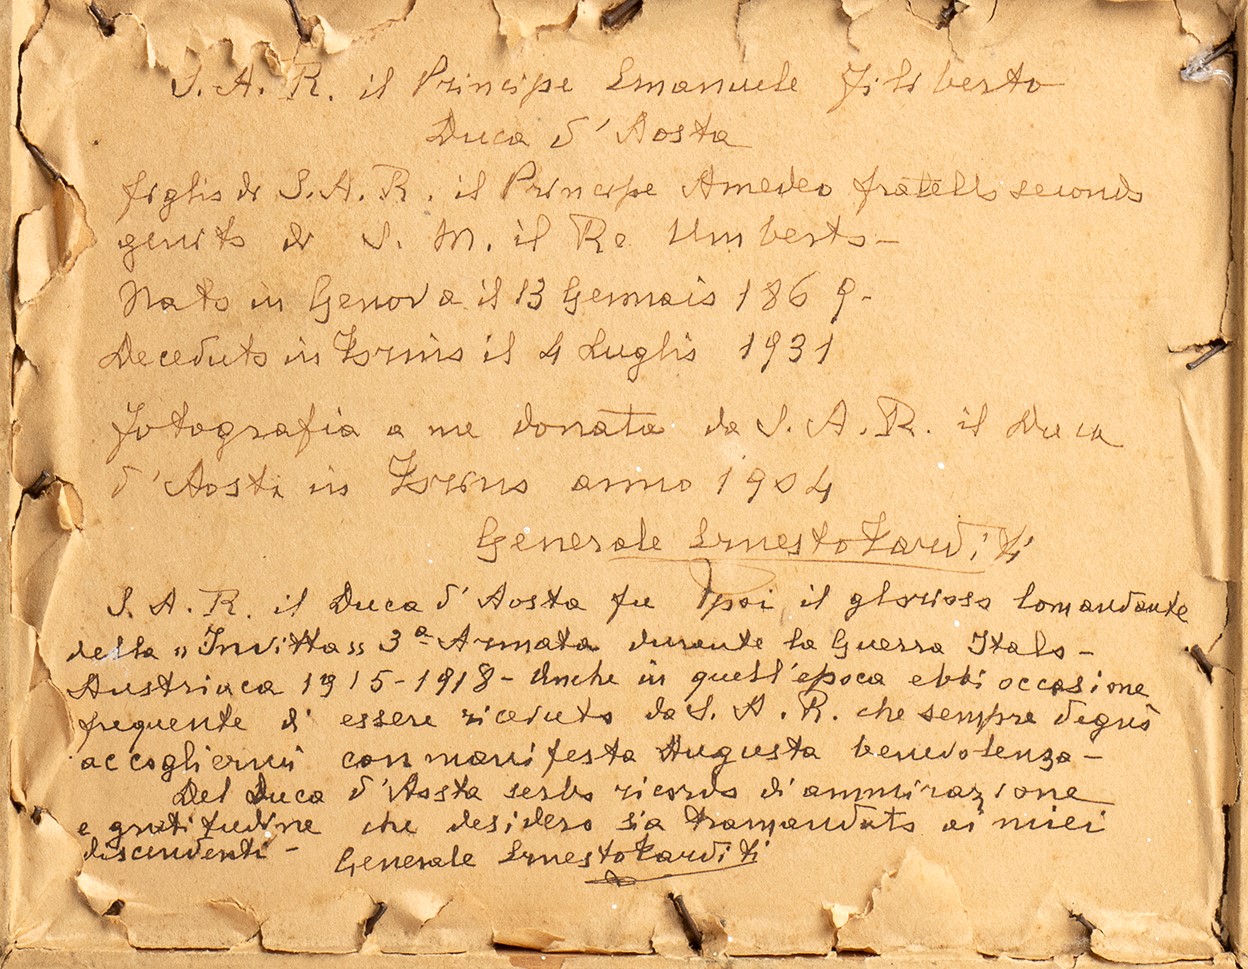 S. A. R. il Principe Emanuele Filiberto
Duca d'Aosta
figlio di S. A. R. il Principe Amedeo fratello secondo
genito di S. M. il Re Umberto -
Nato in Genova il 13 Gennaio 1869 -
Deceduto in Torino il 4 Luglio 1931
Fotografia a me donata da S. A. R. il Duca
d'Aosta in Torino anno 1904
Generale Ernesto Tarditi
S. A. R. il Duca d'Aosta fu poi il glorioso Comandante
della "Invitta" 3ª Armata durante la Guerra Italo-
Austriaca 1915-1918 - Anche in quell'epoca ebbi occasione
frequente d'essere ricevuto da S. A. R. che sempre degnò
accogliermi con manifesta Augusta benevolenza -
Del Duca d'Aosta serbo ricordo di ammirazione
e gratitudine che desidero sia tramandato ai miei
discendenti -
Generale Ernesto Tarditi